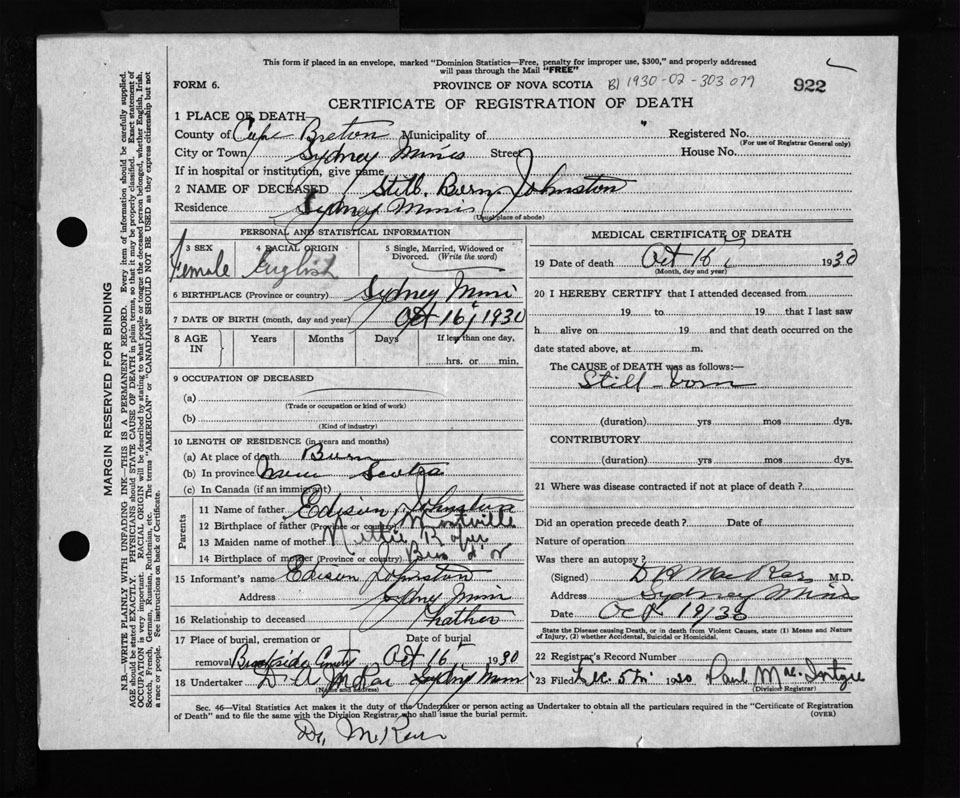 This form if placed in an envelope, marked "Dominion Statistics—Free, penalty for improper use, $300," and properly addressed
will pass through the Mail "FREE"
FORM 6. PROVINCE OF NOVA SCOTIA B) 1930-02-303077 922
CERTIFICATE OF REGISTRATION OF DEATH
1 PLACE OF DEATH
County of Cape Breton Municipality of Registered No.
(For use of Registrar General only)
City or Town Sydney Mines Street House No.
If in hospital or institution, give name
2 NAME OF DECEASED Still Born Johnston
Residence Sydney Mines
(Usual place of abode)
PERSONAL AND STATISTICAL INFORMATION
3 SEX 4 RACIAL ORIGIN 5 Single, Married, Widowed or
Divorced. (Write the word)
Female English
6 BIRTHPLACE (Province or country) Sydney Mines
7 DATE OF BIRTH (month, day and year) Oct 16, 1930
8 AGE IN Years Months Days If less than one day,
hrs. or min.
9 OCCUPATION OF DECEASED
(a)
(Trade or occupation or kind of work)
(b)
(Kind of industry)
10 LENGTH OF RESIDENCE (in years and months)
(a) At place of death Born
(b) In province Nova Scotia
(c) In Canada (if an immigrant)
Parents
11 Name of father Edison Johnston
12 Birthplace of father (Province or country)
13 Maiden name of mother Nettie
14 Birthplace of mother (Province or country)
15 Informant's name Edison Johnston
Address Sydney Mines
16 Relationship to deceased Father
17 Place of burial, cremation or Date of burial
removal Brookside Oct 16 1930
18 Undertaker D. A. Sydney Mines
(Name and address)
MEDICAL CERTIFICATE OF DEATH
19 Date of death Oct 16 1930
(Month, day and year)
20 I HEREBY CERTIFY that I attended deceased from
19 to 19 that I last saw
h alive on 19 and that death occurred on
date stated above, at m.
The CAUSE of DEATH was as follows:—
Still-born
(duration) yrs mos dys.
CONTRIBUTORY
(duration) yrs mos dys.
21 Where was disease contracted if not at place of death?
Did an operation precede death? Date of
Nature of operation
Was there an autopsy?
(Signed) M.D.
Address Sydney Mines
Date Oct 19/30
State the Disease causing Death, or in death from Violent Causes, state (1) Means and Nature
of Injury, (2) whether Accidental, Suicidal or Homicidal.
22 Registrar's Record Number
23 Filed Dec. 5th 1930 Paul
(Division Registrar)
Sec. 46—Vital Statistics Act makes it the duty of the Undertaker or person acting as Undertaker to obtain all the particulars required in the "Certificate of Registration
of Death" and to file the same with the Division Registrar who shall issue the burial permit. (OVER)
Dr.
MARGIN RESERVED FOR BINDING
N.B.—WRITE PLAINLY WITH UNFADING INK—THIS IS A PERMANENT RECORD. Every item of information should be carefully supplied.
AGE should be stated EXACTLY. PHYSICIANS should STATE CAUSE OF DEATH in plain terms, so that it may be properly classified. Exact statement of
OCCUPATION is very important. RACIAL ORIGIN will be described by stating to what people or tongue the deceased person belonged, whether English, Irish,
Scotch, French, German, Russian, Ruthenian, etc. The terms "AMERICAN" or "CANADIAN" SHOULD NOT BE USED as they express citizenship but not
a race or people. See instructions on back of Certificate.